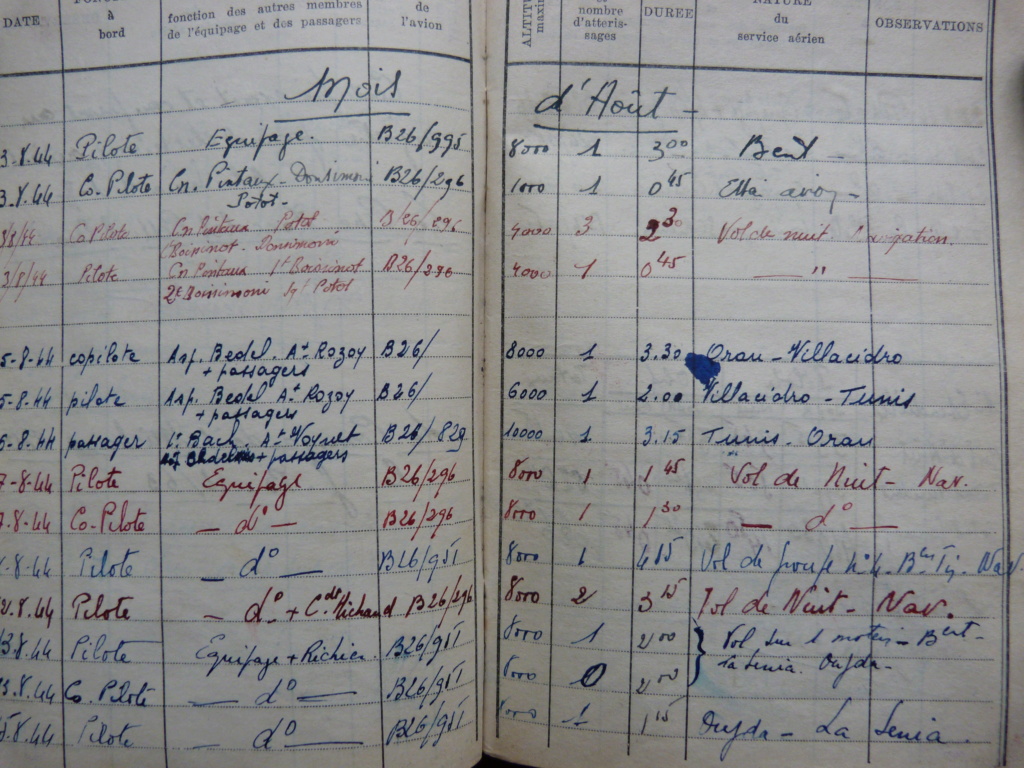 DATE à bord fonction des autres membres de l'équipage et des passagers de l'avion ALTITUDE maxim nombre d'atterissages DUREE NATURE du service aérien OBSERVATIONS
Mois d'Août -
3.8.44 Pilote Equipage. B26/995 8000 1 3 00
3.8.44 Co. Pilote Cn. Pintaux - Donsimoni B26/296 1000 1 0 45 Essai avion -
Potot -
8/44 Co Pilote Cn Pintaux Potot B26/296 4000 3 2 30 Vol de nuit Navigation.
Boisinot - Donsimoni
3/8/44 Pilote Cn Pintaux Lt Boisinot B26/296 4000 1 0 45 — " —
Donsimoni Sgt Potot
5-8-44 copilote Asp. Bedel. At Rozoy B26/ 8000 1 3.30 Oran - Villacidro
+ passagers
5-8-44 pilote Asp. Bedel At Rozoy B26/ 6000 1 2.00 Villacidro - Tunis
+ passagers
6-8-44 passager Lt. Bach. At Voynet B26/829 10000 1 3.15 Tunis - Oran
+ passagers
7-8-44 Pilote Equipage B26/296 8000 1 1 45 Vol de Nuit - Nav.
7.8.44 Co-Pilote — do — B26/296 8000 1 1 30 — do —
8.44 Pilote — do — B26/951 8000 1 4 15 Vol de groupe Nav
8.44 Pilote — do + Cdt Michaud B26/296 8000 2 3 15 Vol de Nuit - Nav.
13.8.44 Pilote Equipage + Richier. B26/951 8000 1 2 00 } Vol sur 1 moteur - Bent -
13.8.44 Co. Pilote — do — B26/951 0 2 00 La Senia. Oujda -
5.8.44 Pilote — do — B26/951 1 1 15 Oujda - La Senia.